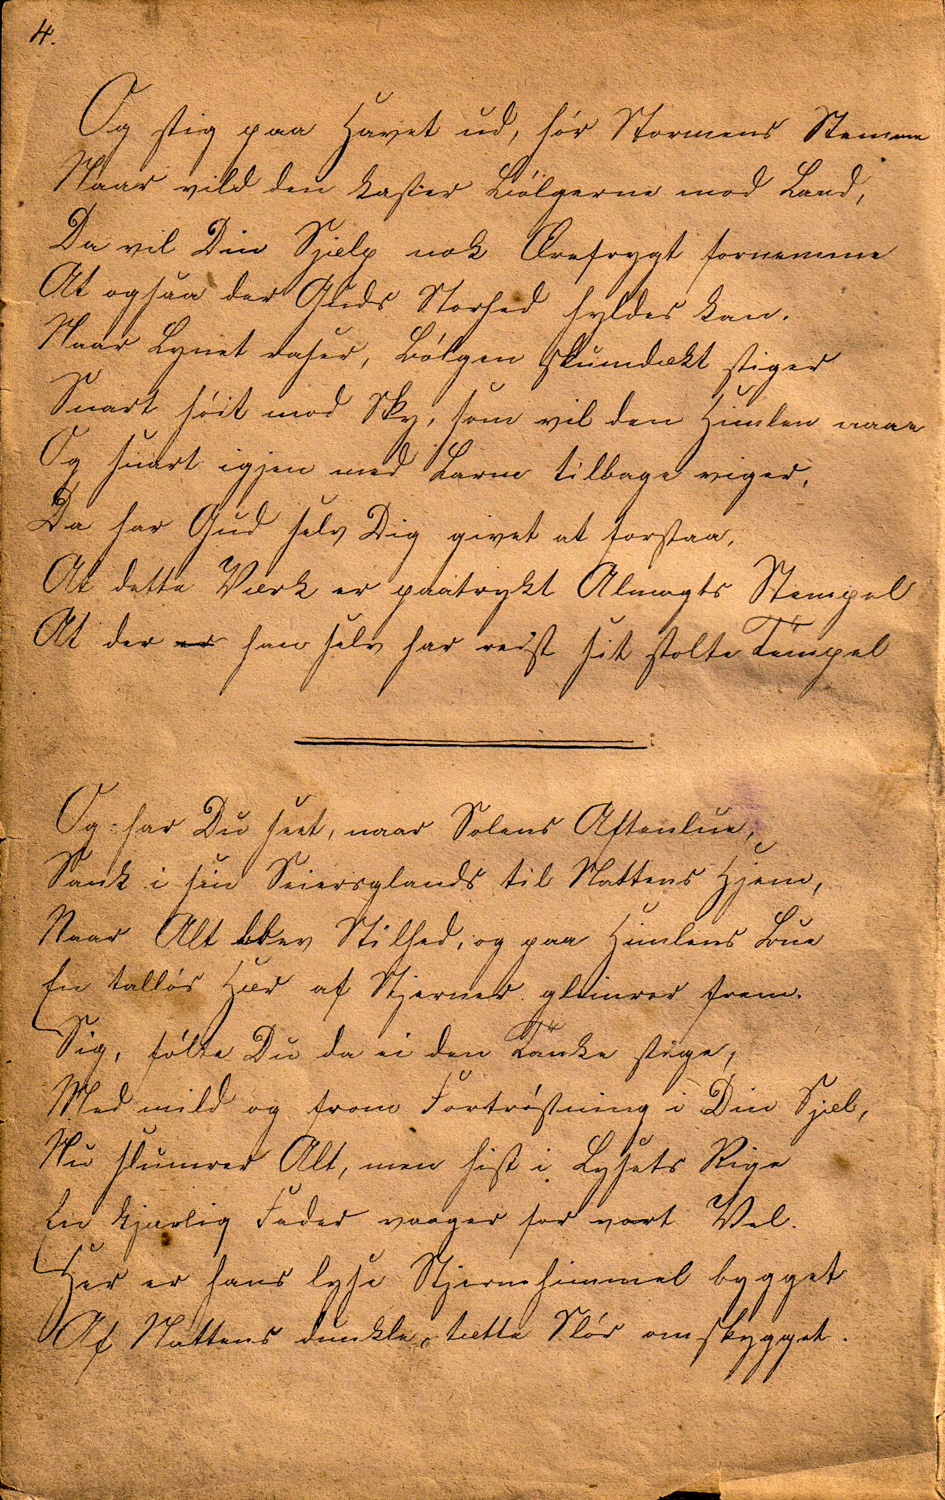 4.
Og stig paa Havet ud, hør Stormens Stemme
Naar vild den kaster Bölgerne mod Land,
Da vil Din Sjælp nok Ærefrygt fornemme
At ogsaa der Guds Storhed hyldes kan.
Naar Lynet raser, Bölgen skumdækt stiger
Snart höit mod Sky, som vil den Himlen naae
Og snart igjen med Larm tilbage viger,
Da har Gud selv Dig givet at forstaa,
At dette Værk er paatrykt Almagts Stempel
At der er han selv har reist sit stolte Tempel
Og har Du seet, naar Solens Aftenlue,
Sank i sin Seiersglands til Nattens Hjem,
Naar Alt blev Stilhed, og paa Himlens Bue
En tallös Hær af Stjerner glimrer frem.
Sig, fölte Du da ei den Tanke stige,
Med mild og from Fortröstning i Din Sjæl,
Nu slumrer Alt, men hist i Lysets Rige
En kjærlig Fader vaager for vort Vel.
Her er hans lyse Stjernehimmel bygget
Af Nattens dunkle, tætte Slör omskygget.